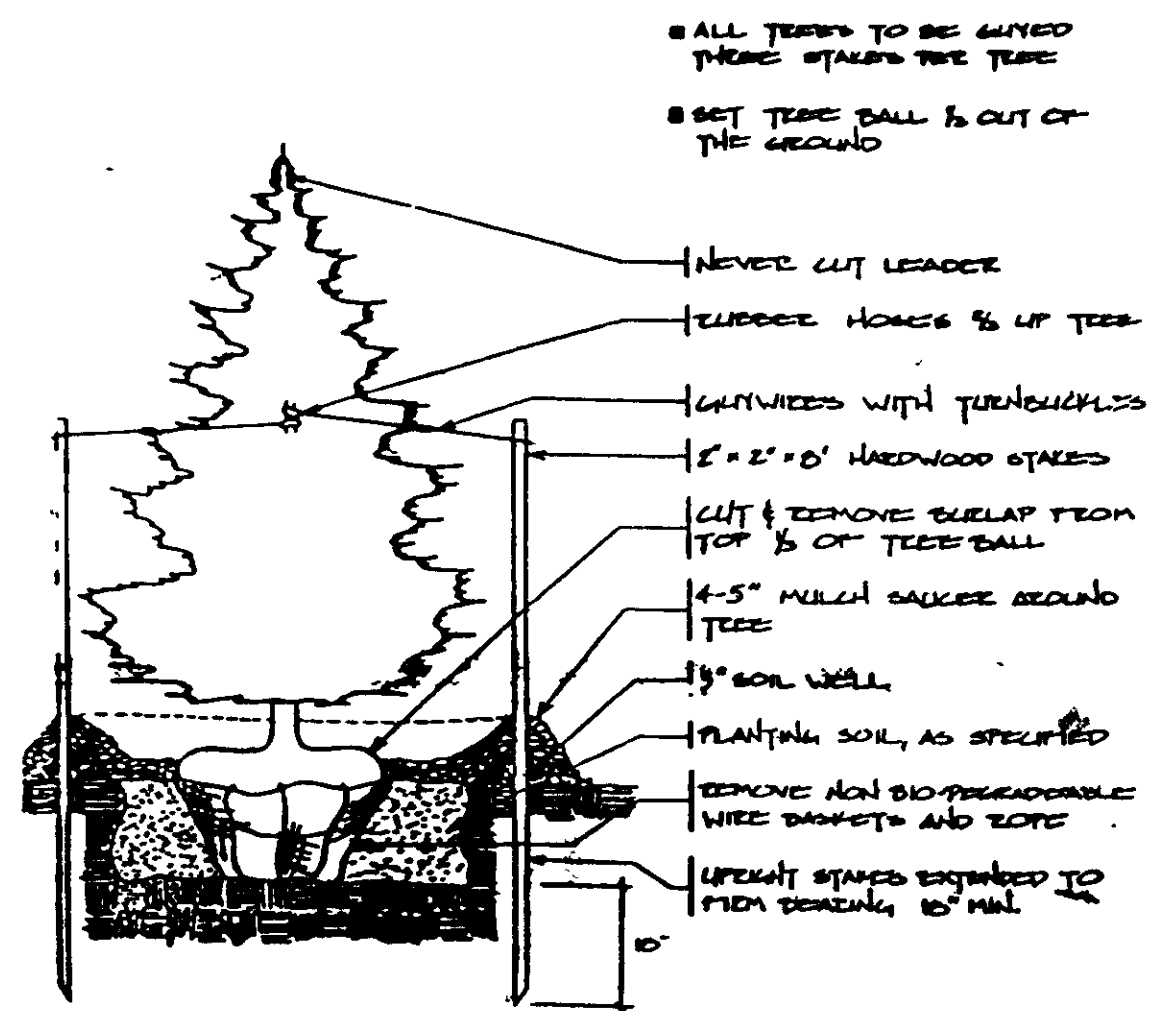 ■ ALL TREES TO BE GUYED
THREE STAKES PER TREE
■ SET TREE BALL ⅓ OUT OF
THE GROUND
NEVER CUT LEADER
RUBBER HOSES ⅔ UP TREE
GUYWIRES WITH TURNBUCKLES
2" × 2" × 8' HARDWOOD STAKES
CUT & REMOVE BURLAP FROM
TOP ⅓ OF TREE BALL
4-5" MULCH SAUCER AROUND
TREE
SOIL WELL
PLANTING SOIL, AS SPECIFIED
REMOVE NON BIO-DEGRADEABLE
WIRE BASKETS AND ROPE
UPRIGHT STAKES EXTENDED TO
FIRM BEARING, 18" MIN.